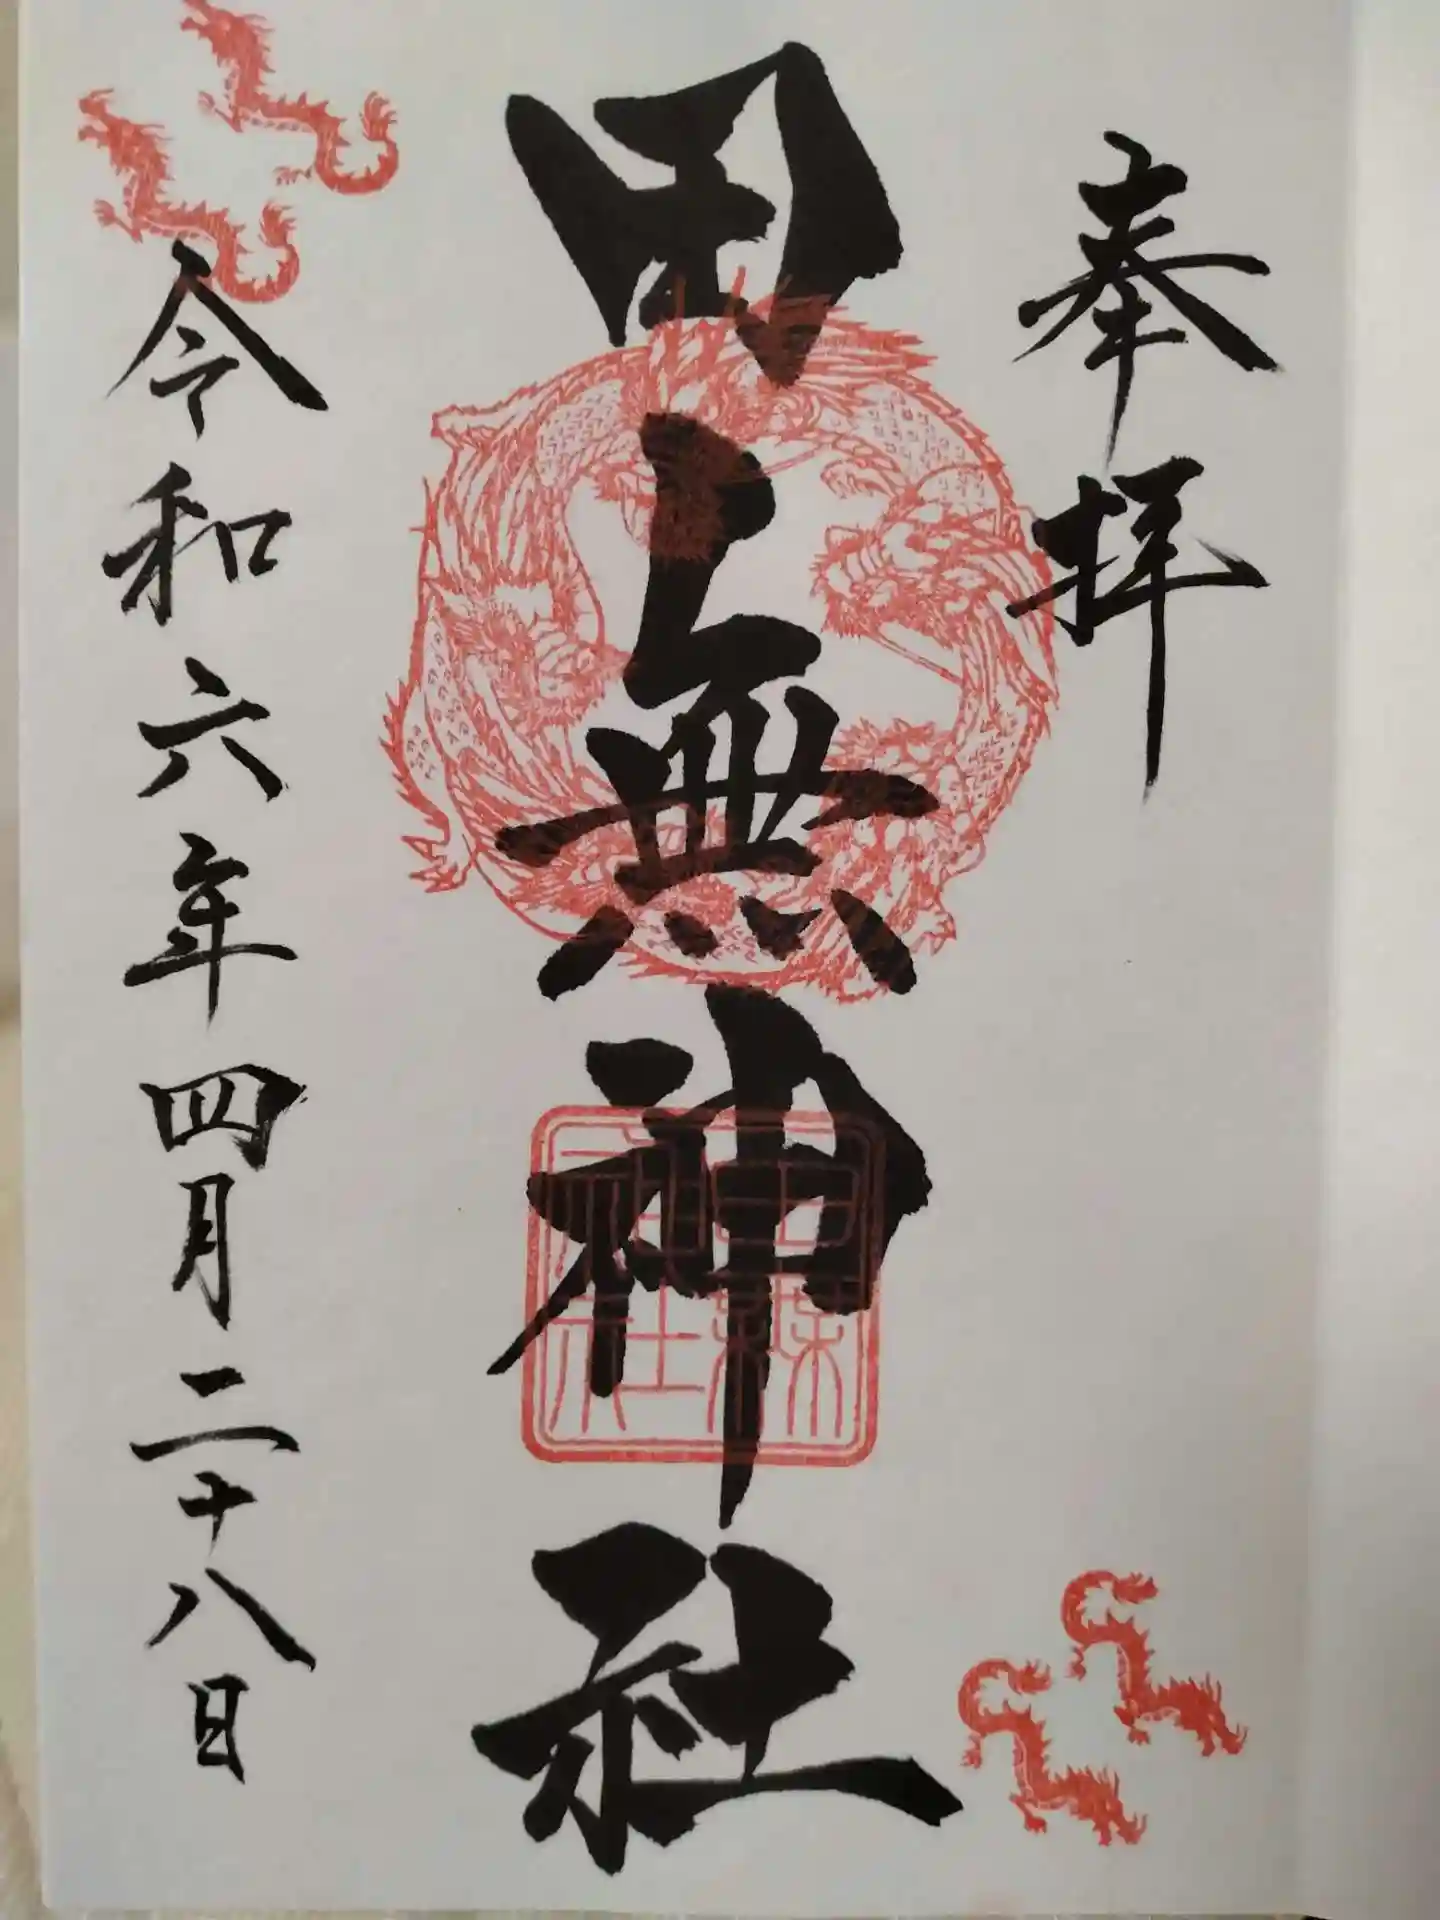 奉拝
田無神社
令和六年四月二十八日
田無神社